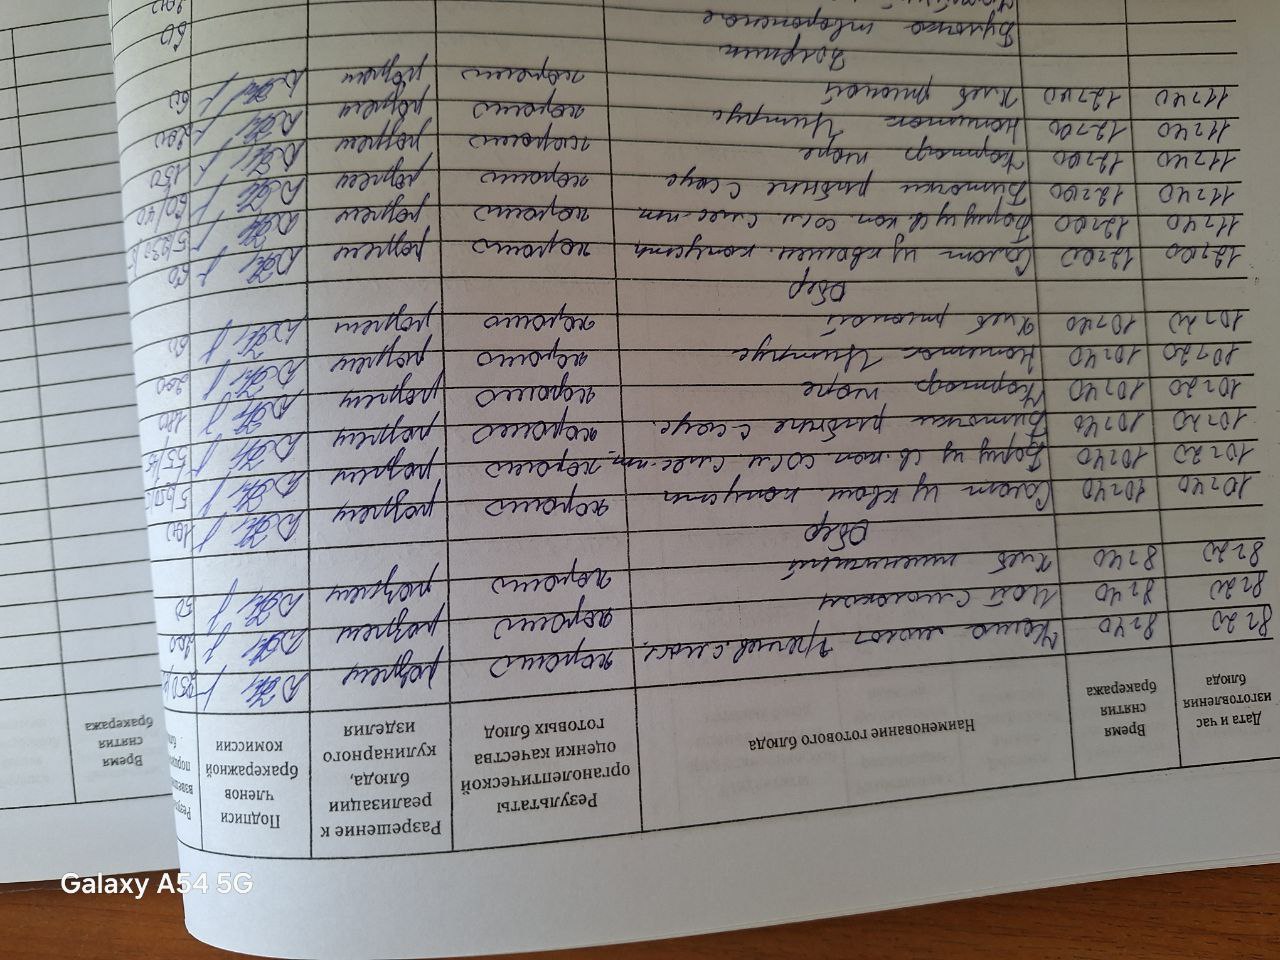 Дата и час изготовления блюда | Время снятия бракеража | Наименование готового блюда | Результаты органолептической оценки качества готовых блюд | Разрешение к реализации блюда, кулинарного изделия | Подписи членов бракеражной комиссии
8:20 8:40 Каша молоч. гречнев. с масл. хорошо разреш
8:20 8:40 Чай с молоком хорошо разреш 200
8:20 8:40 Хлеб пшеничный хорошо разреш 50
Обед
10:40 10:40 Салат из кваш капусты хорошо разреш 100
10:20 10:40 Борщ из св. кап. со см. с мяс-пт. хорошо разреш
10:20 10:40 Биточки рыбные с соус. хорошо разреш
10:20 10:40 Картоф пюре хорошо разреш 180
10:20 10:40 Напиток Цитрус хорошо разреш 200
10:20 10:40 Хлеб ржаной хорошо разреш 60
Обед
12:00 12:00 Салат из квашен. капусты хорошо разреш 60
11:40 12:00 Борщ из св кап. со см. с мяс-пт. хорошо разреш
11:40 12:00 Биточки рыбные с соус хорошо разреш 60/40
11:40 12:00 Картоф пюре хорошо разреш 150
11:40 12:00 Напиток Цитрус хорошо разреш 200
11:40 12:00 Хлеб ржаной хорошо разреш 60
Полдник
Булочка творожная 60
Время снятия бракеража
Galaxy A54 5G